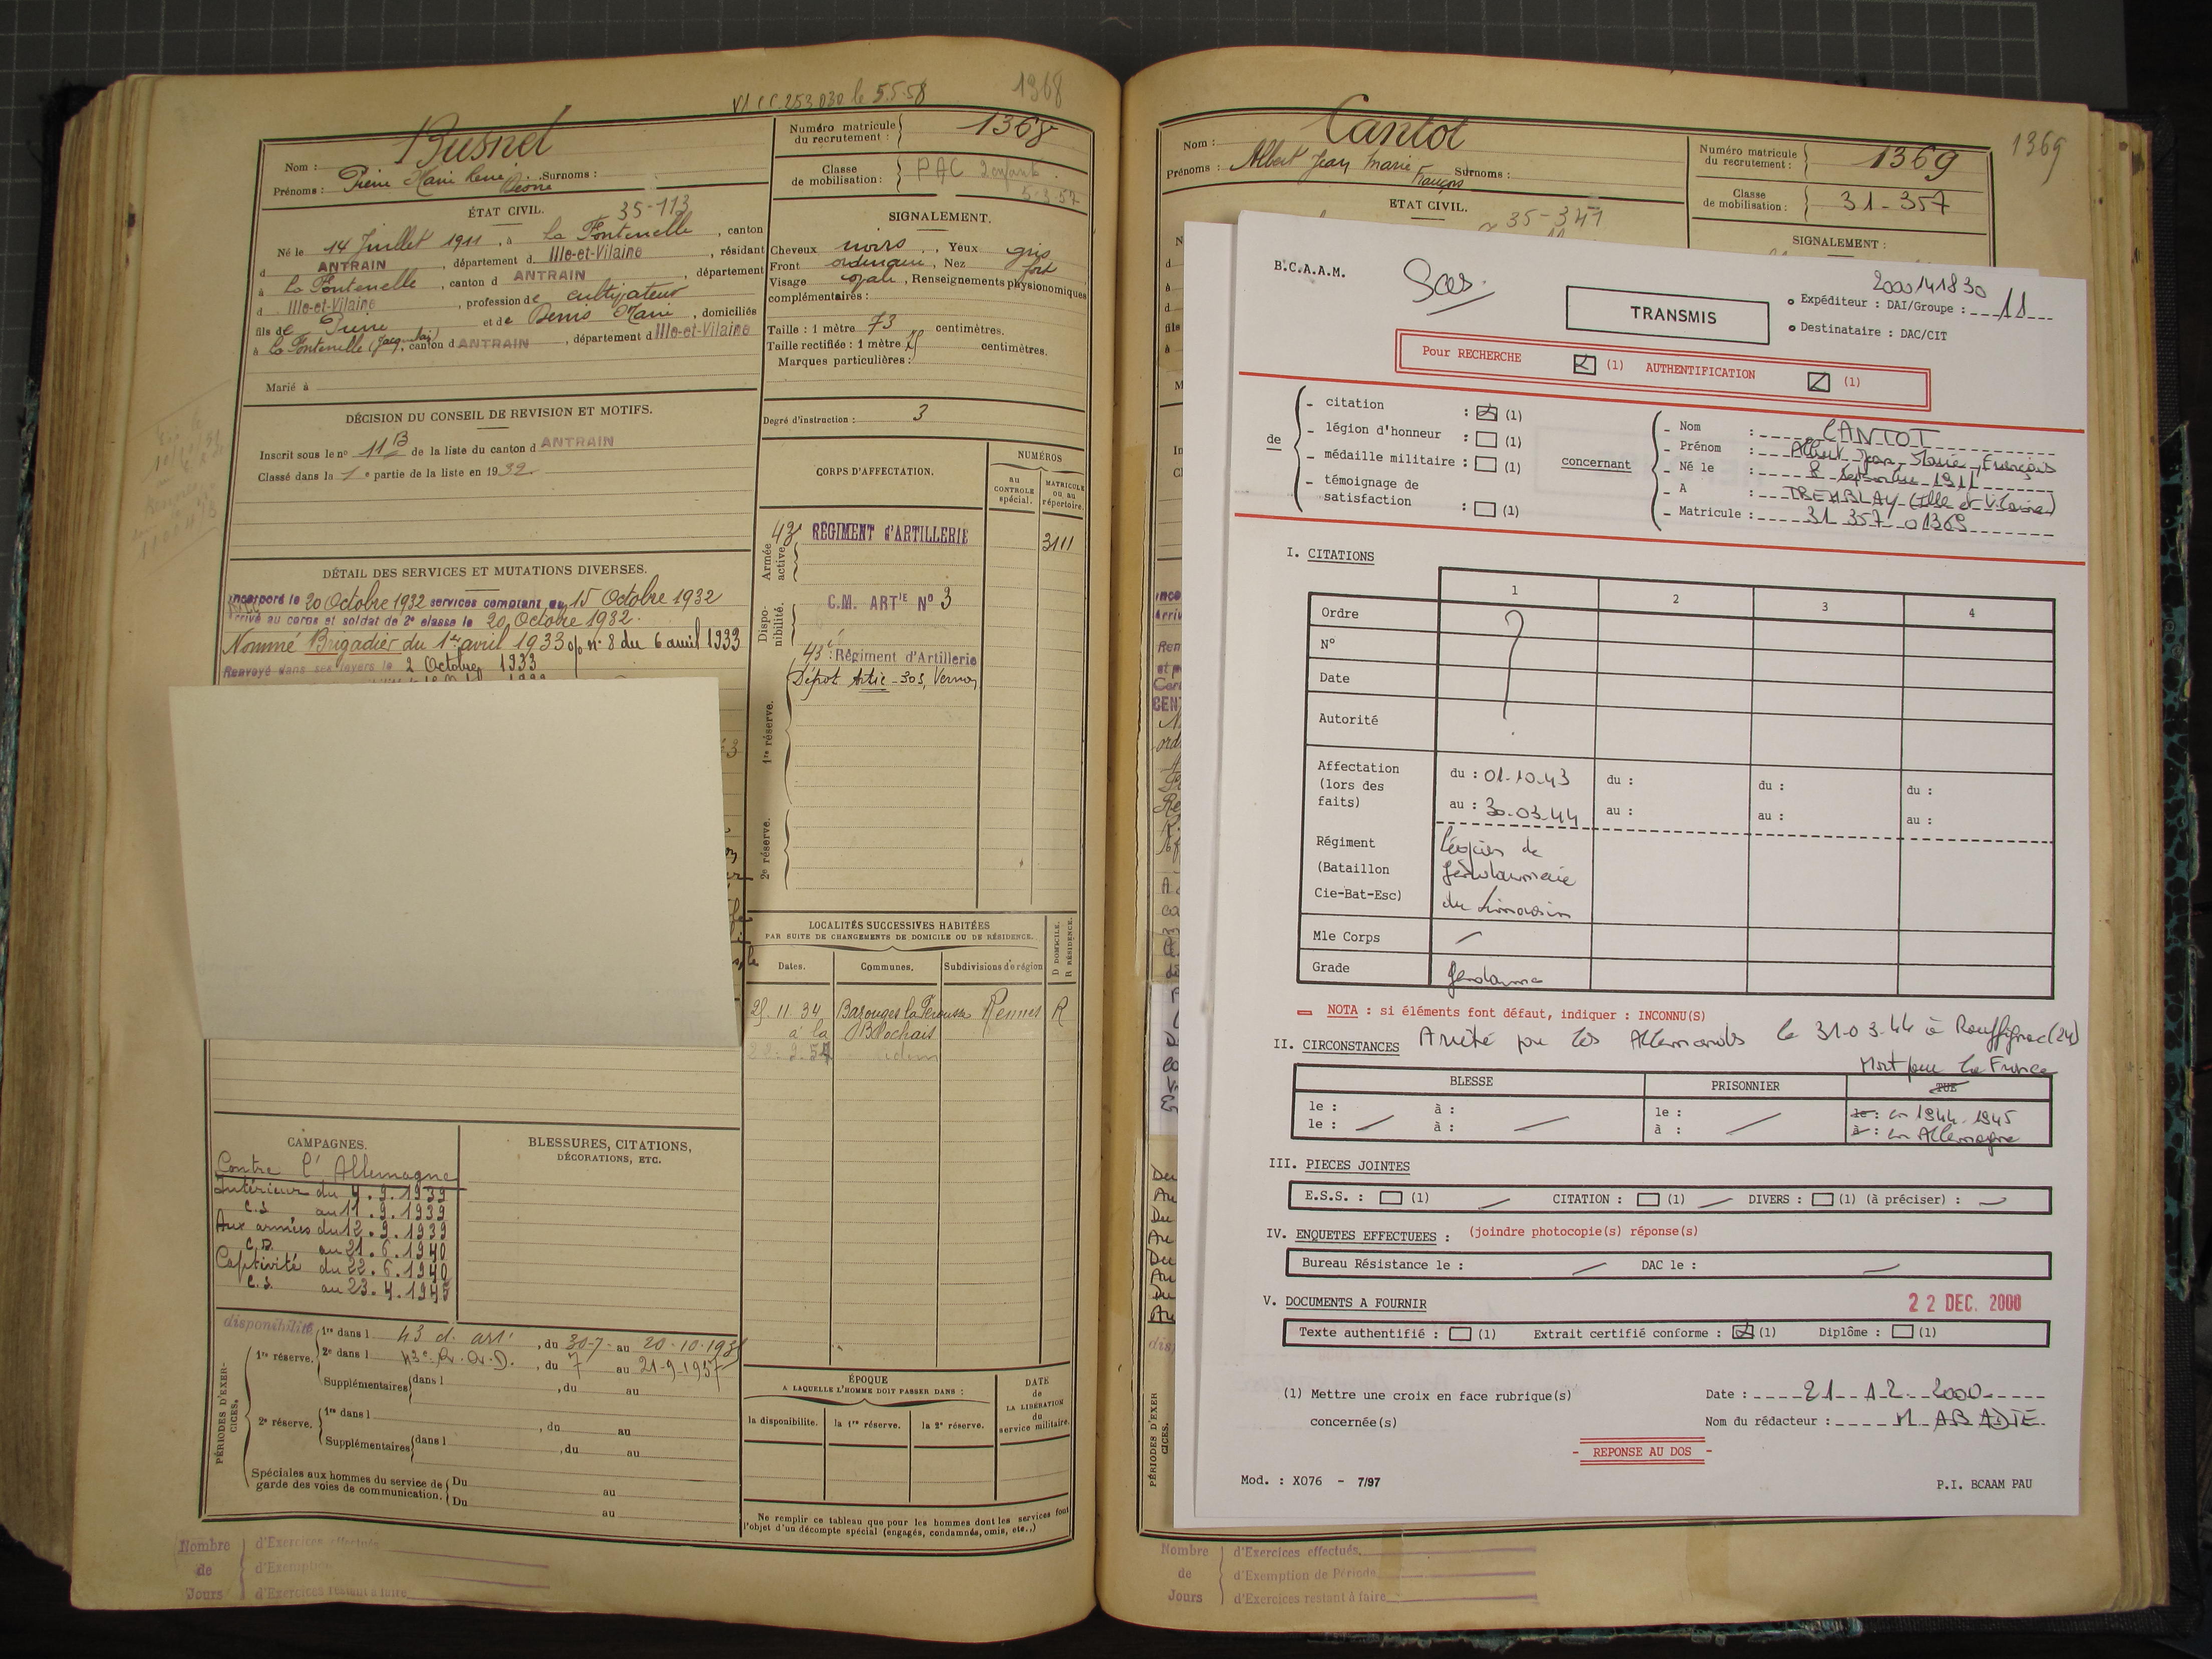 VI CC 253 030 le 5.5.58
1368
Nom : Busnel
Prénoms : Pierre Marie René Surnoms :
Numéro matricule du recrutement : 1368
Classe de mobilisation : PAC 2 enfants
5-3-57
ÉTAT CIVIL.
35-113
Né le 14 Juillet 1911, à La Fontenelle, canton
d ANTRAIN, département d Ille-et-Vilaine, résidant
à La Fontenelle, canton d ANTRAIN, département
d Ille-et-Vilaine, profession de cultivateur
fils de Pierre et de Denis Marie, domiciliés
à La Fontenelle, canton d ANTRAIN, département d Ille-et-Vilaine
Marié à
SIGNALEMENT.
Cheveux noirs, Yeux gris
Front ordinaire, Nez fort
Visage ovale, Renseignements physionomiques
complémentaires :
Taille : 1 mètre 73 centimètres.
Taille rectifiée : 1 mètre centimètres.
Marques particulières :
Degré d'instruction : 3
DÉCISION DU CONSEIL DE REVISION ET MOTIFS.
Inscrit sous le n° 11 B de la liste du canton d ANTRAIN
Classé dans la 1e partie de la liste en 1932
CORPS D'AFFECTATION.
NUMÉROS
au CONTROLE spécial.
MATRICULE ou au répertoire.
Armée active
43e RÉGIMENT d'ARTILLERIE
3111
Disponibilité.
C.M. ARTIE N° 3
43e Régiment d'Artillerie
Dépot Artie - 303, Vernon
1re réserve.
2e réserve.
DÉTAIL DES SERVICES ET MUTATIONS DIVERSES.
Incorporé le 20 Octobre 1932 services comptant du 15 Octobre 1932
Arrivé au corps et soldat de 2e classe le 20 Octobre 1932.
Nommé Brigadier du 1er avril 1933 o/ n° 8 du 6 avril 1933
Renvoyé dans ses foyers le 2 Octobre 1933
LOCALITÉS SUCCESSIVES HABITÉES
PAR SUITE DE CHANGEMENTS DE DOMICILE OU DE RÉSIDENCE.
D DOMICILE.
R RÉSIDENCE.
Dates. Communes. Subdivisions de région
25.11.34 Bazouges la Pérouse Rennes R
à la
idem
CAMPAGNES.
Contre l'Allemagne
Intérieur du 4.9.1939
C.S. au 11.9.1939
Aux armées du 12.9.1939
C.D. au 21.6.1940
Captivité du 22.6.1940
C.S. au 23.4.1945
BLESSURES, CITATIONS,
DÉCORATIONS, ETC.
disponibilité
PÉRIODES D'EXERCICES.
1re réserve.
1re dans l 43 d. art, du 30-7- au 20-10-193
2e dans l 43e R.A.D., du 7 au 21-9-1937
Supplémentaires dans l, du au
2e réserve.
1re dans l, du au
Supplémentaires dans l, du au
Spéciales aux hommes du service de garde des voies de communication. Du au
Du au
ÉPOQUE
A LAQUELLE L'HOMME DOIT PASSER DANS :
la disponibilité. la 1re réserve. la 2e réserve.
DATE de LA LIBÉRATION du service militaire.
Ne remplir ce tableau que pour les hommes dont les services font
l'objet d'un décompte spécial (engagés, condamnés, omis, etc.,)
Nombre de Jours
d'Exercices effectués
d'Exemption
d'Exercices restant à faire
1369
Nom : Cantot
Prénoms : Albert Jean Marie François Surnoms :
Numéro matricule du recrutement : 1369
Classe de mobilisation : 31-357
ETAT CIVIL.
35-341
SIGNALEMENT :
B.C.A.A.M.
2000141830
TRANSMIS
Expéditeur : DAI/Groupe : 11
Destinataire : DAC/CIT
Pour RECHERCHE (1) AUTHENTIFICATION (1)
de
- citation : (1)
- légion d'honneur : (1)
- médaille militaire : (1)
- témoignage de satisfaction : (1)
concernant
- Nom : CANTOT
- Prénom : Albert Jean Marie François
- Né le : 8 Septembre 1911
- A : TREMBLAY (Ille et Vilaine)
- Matricule : 31 357 01369
I. CITATIONS
1 2 3 4
Ordre ?
N°
Date
Autorité
Affectation (lors des faits)
du : 01.10.43 du : du : du :
au : 30.03.44 au : au : au :
Régiment (Bataillon Cie-Bat-Esc)
Légion de
gendarmerie
du Limousin
Mle Corps
Grade gendarme
NOTA : si éléments font défaut, indiquer : INCONNU(S)
II. CIRCONSTANCES Arrêté par les Allemands le 31.03.44 à Rouffignac (24)
Mort pour la France
BLESSE PRISONNIER TUE
le : à : le : le : en 1944.1945
le : à : à : à : en Allemagne
III. PIECES JOINTES
E.S.S. : (1) CITATION : (1) DIVERS : (1) (à préciser) :
IV. ENQUETES EFFECTUEES : (joindre photocopie(s) réponse(s)
Bureau Résistance le : DAC le :
V. DOCUMENTS A FOURNIR
22 DEC. 2000
Texte authentifié : (1) Extrait certifié conforme : (1) Diplôme : (1)
(1) Mettre une croix en face rubrique(s)
concernée(s)
Date : 21 12 2000
Nom du rédacteur : M ABADIE
- REPONSE AU DOS -
Mod. : X076 - 7/97
P.I. BCAAM PAU
PÉRIODES D'EXERCICES.
Nombre de Jours
d'Exercices effectués
d'Exemption de Période
d'Exercices restant à faire